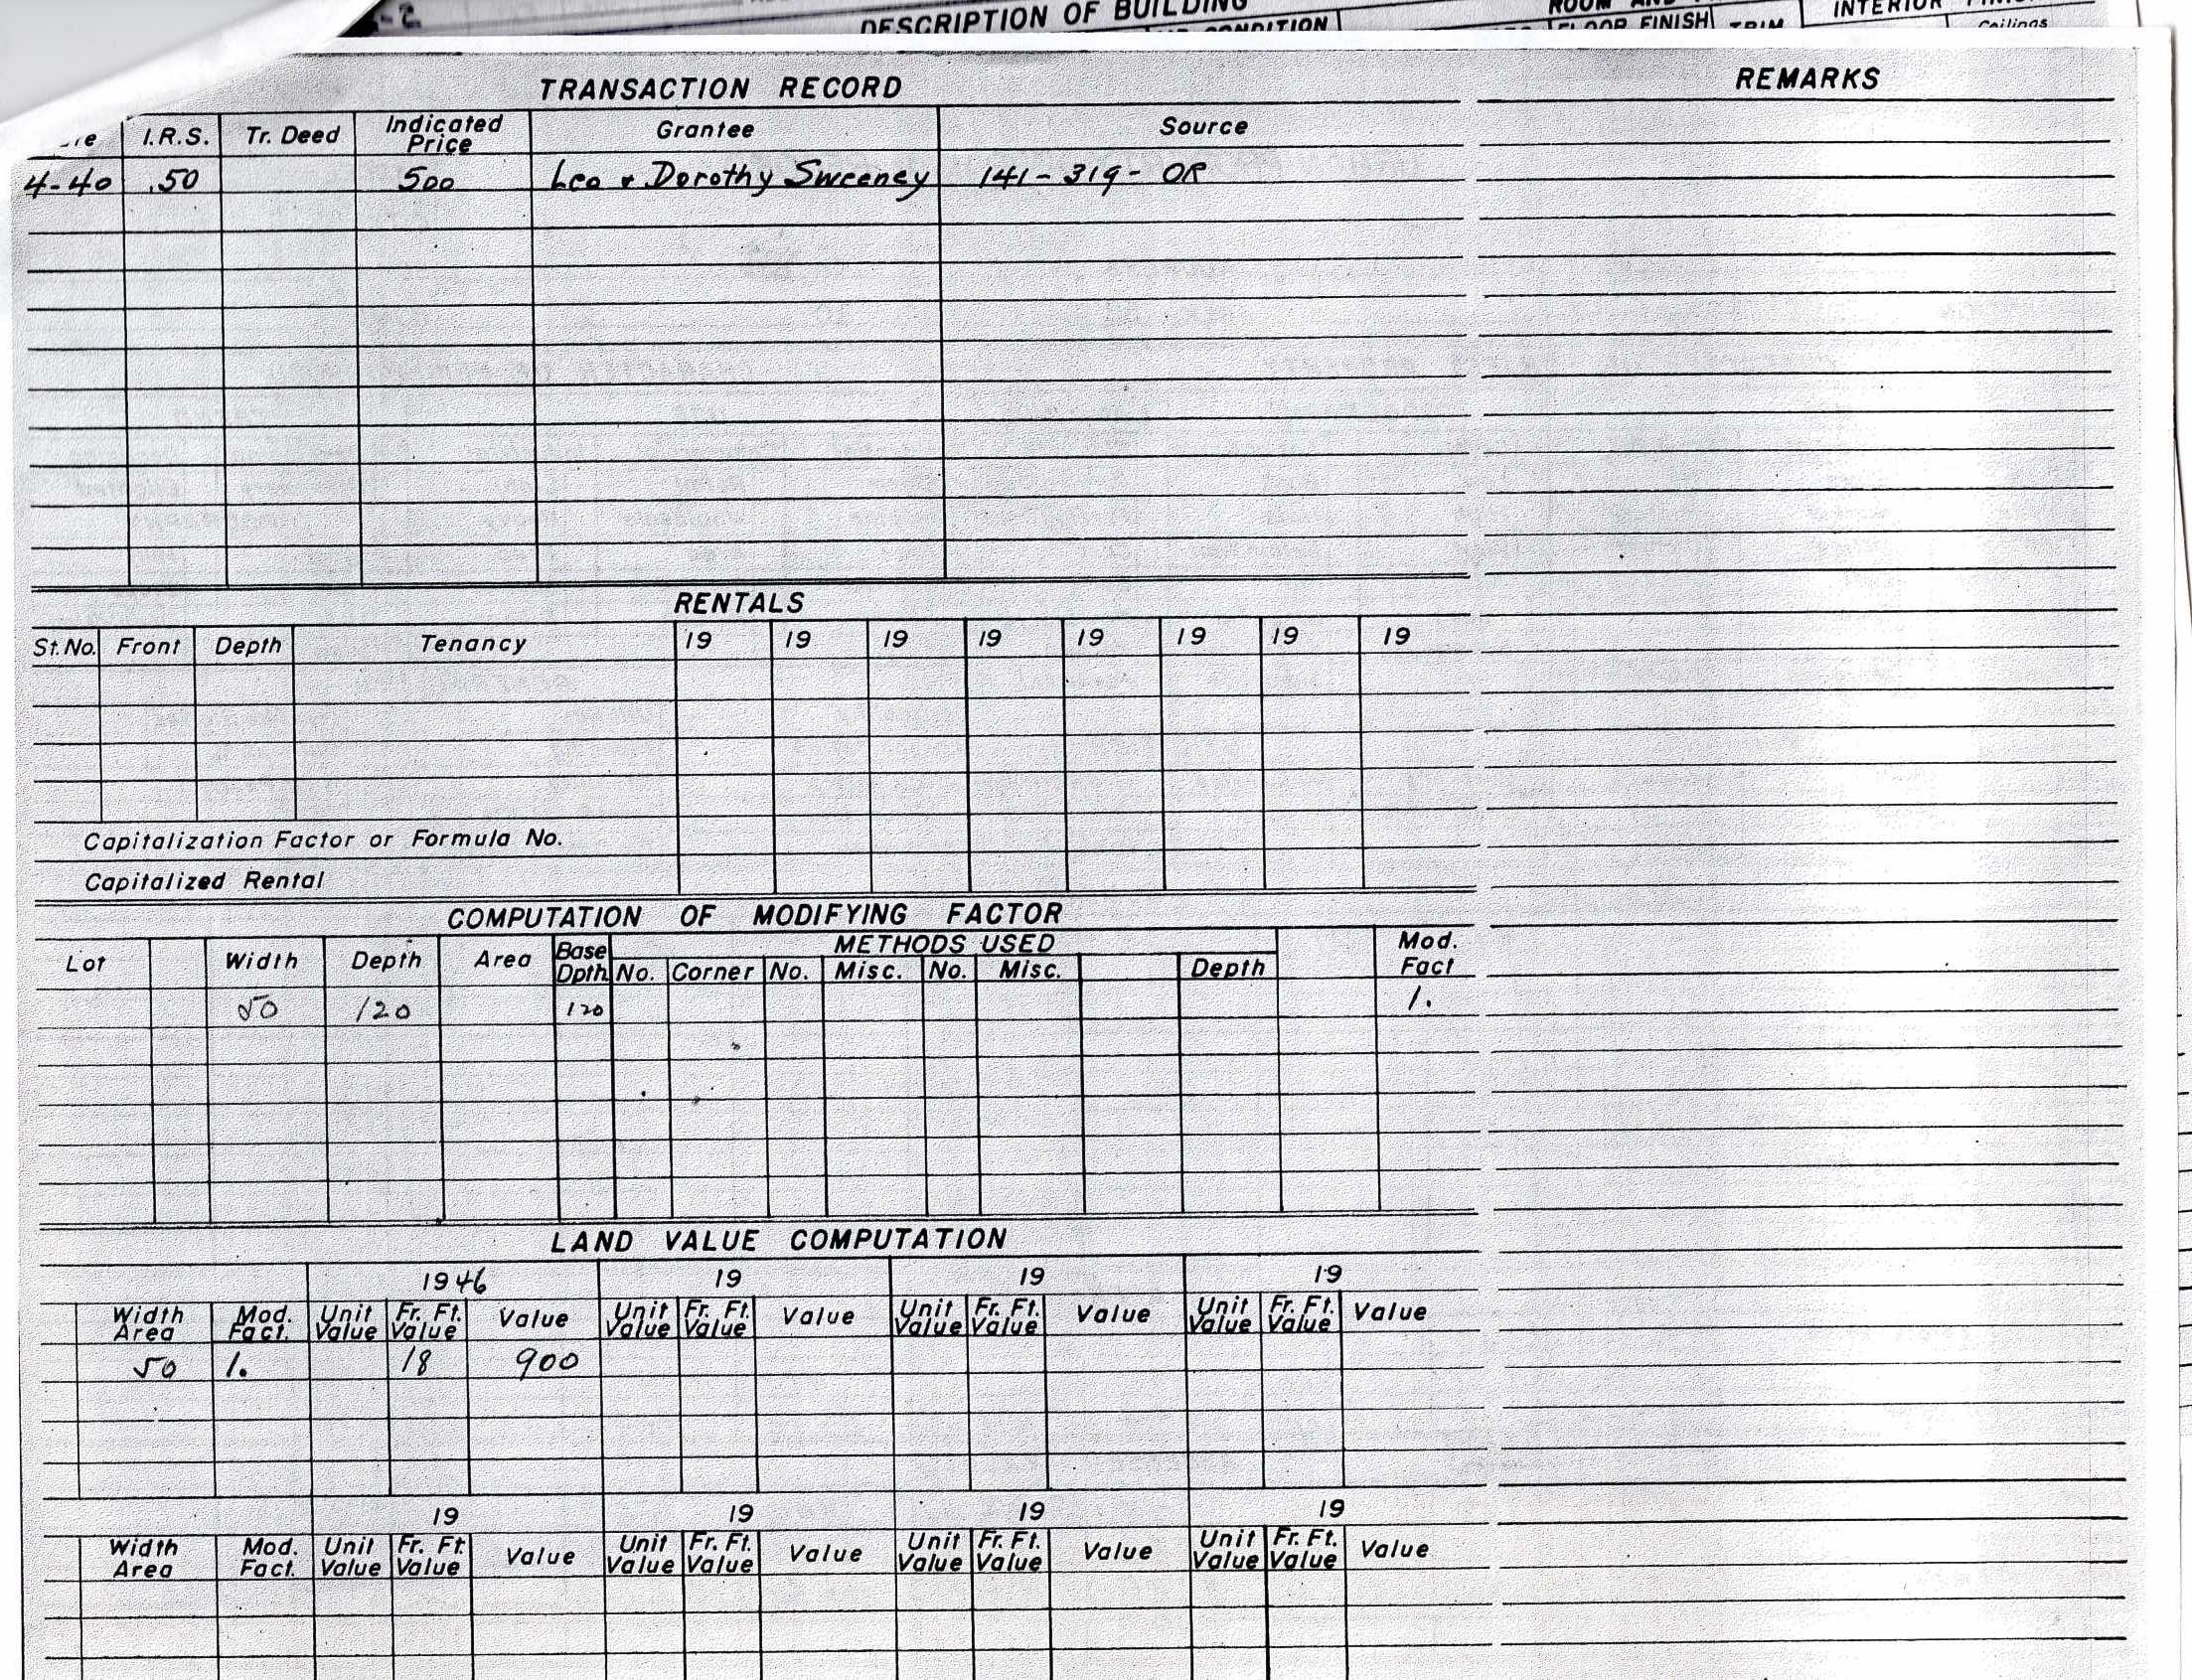 DESCRIPTION OF BUILDING
CONDITION
FLOOR FINISH TRIM
INTERIOR
Ceilings
TRANSACTION RECORD
REMARKS
I.R.S. Tr. Deed Indicated Price Grantee Source
4-40 .50 500 Leo & Dorothy Sweeney 141-319-OR
RENTALS
St. No. Front Depth Tenancy 19 19 19 19 19 19 19 19
Capitalization Factor or Formula No.
Capitalized Rental
COMPUTATION OF MODIFYING FACTOR
METHODS USED
Lot Width Depth Area Base Dpth. No. Corner No. Misc. No. Misc. Depth Mod. Fact
50 120 120 1.
LAND VALUE COMPUTATION
1946 19 19 19
Width Area Mod. Fact. Unit Value Fr. Ft. Value Value Unit Value Fr. Ft. Value Value Unit Value Fr. Ft. Value Value Unit Value Fr. Ft. Value Value
50 1. 18 900
19 19 19 19
Width Area Mod. Fact. Unit Value Fr. Ft Value Value Unit Value Fr. Ft. Value Value Unit Value Fr. Ft. Value Value Unit Value Fr. Ft. Value Value